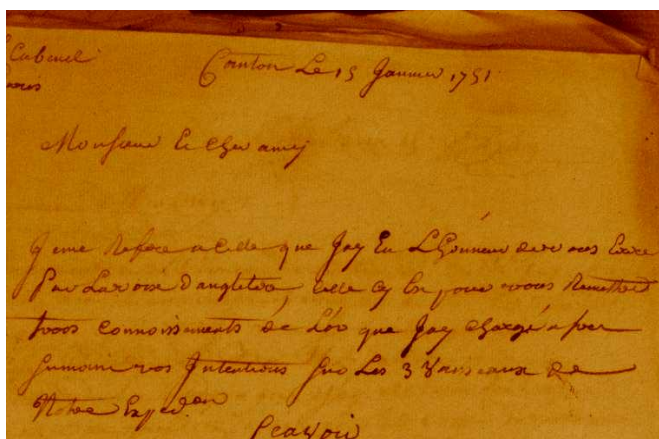 Canton Le 15 Janvier 1751
Monsieur & Cher amy
Je me Refere a celle que Jay Eu L'honneur de vous Ecrire
Par La voie d'angleterre, celle cy Est pour vous Remettre
trois connoissements de L'or que Jay chargé a fret
suivant vos Intentions sur Les 3 Vaisseaux de
Notre Exped.on
Scavoir